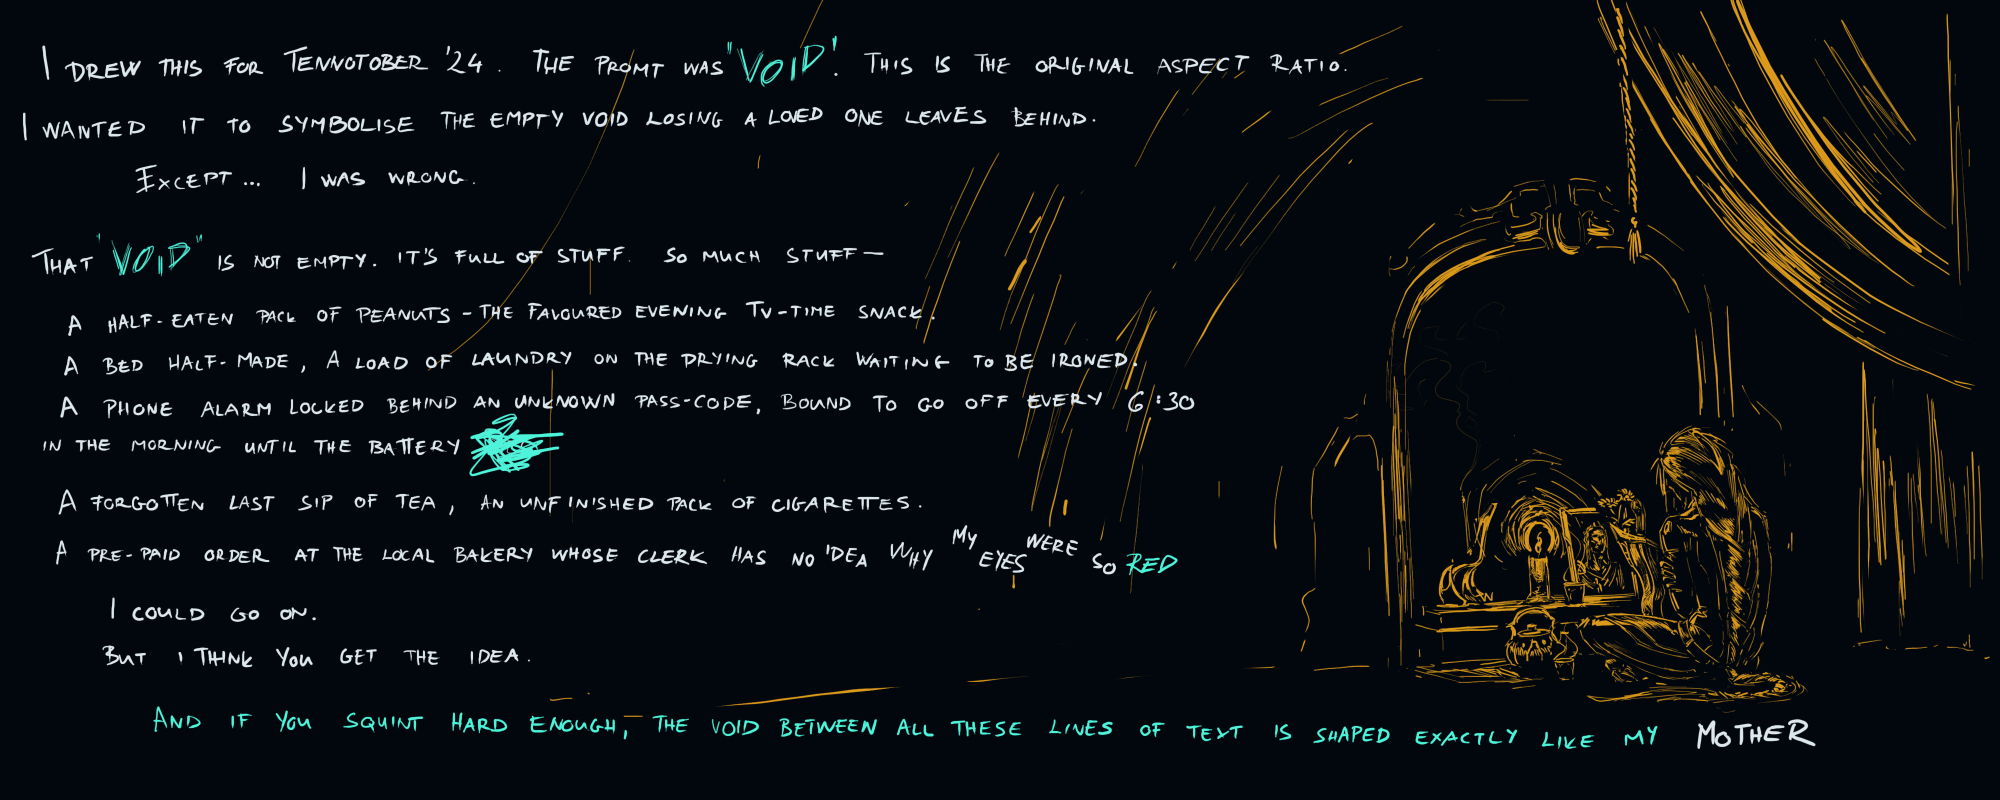 I DREW THIS FOR TENNOTOBER '24. THE PROMT WAS "VOID". THIS IS THE ORIGINAL ASPECT RATIO.
I WANTED IT TO SYMBOLISE THE EMPTY VOID LOSING A LOVED ONE LEAVES BEHIND.
EXCEPT... I WAS WRONG.
THAT "VOID" IS NOT EMPTY. IT'S FULL OF STUFF. SO MUCH STUFF—
A HALF-EATEN PACK OF PEANUTS - THE FAVOURED EVENING TV-TIME SNACK.
A BED HALF-MADE, A LOAD OF LAUNDRY ON THE DRYING RACK WAITING TO BE IRONED.
A PHONE ALARM LOCKED BEHIND AN UNKNOWN PASS-CODE, BOUND TO GO OFF EVERY 6:30
IN THE MORNING UNTIL THE BATTERY
A FORGOTTEN LAST SIP OF TEA, AN UNFINISHED PACK OF CIGARETTES.
A PRE-PAID ORDER AT THE LOCAL BAKERY WHOSE CLERK HAS NO IDEA WHY MY EYES WERE SO RED
I COULD GO ON.
BUT I THINK YOU GET THE IDEA.
AND IF YOU SQUINT HARD ENOUGH, THE VOID BETWEEN ALL THESE LINES OF TEXT IS SHAPED EXACTLY LIKE MY MOTHER